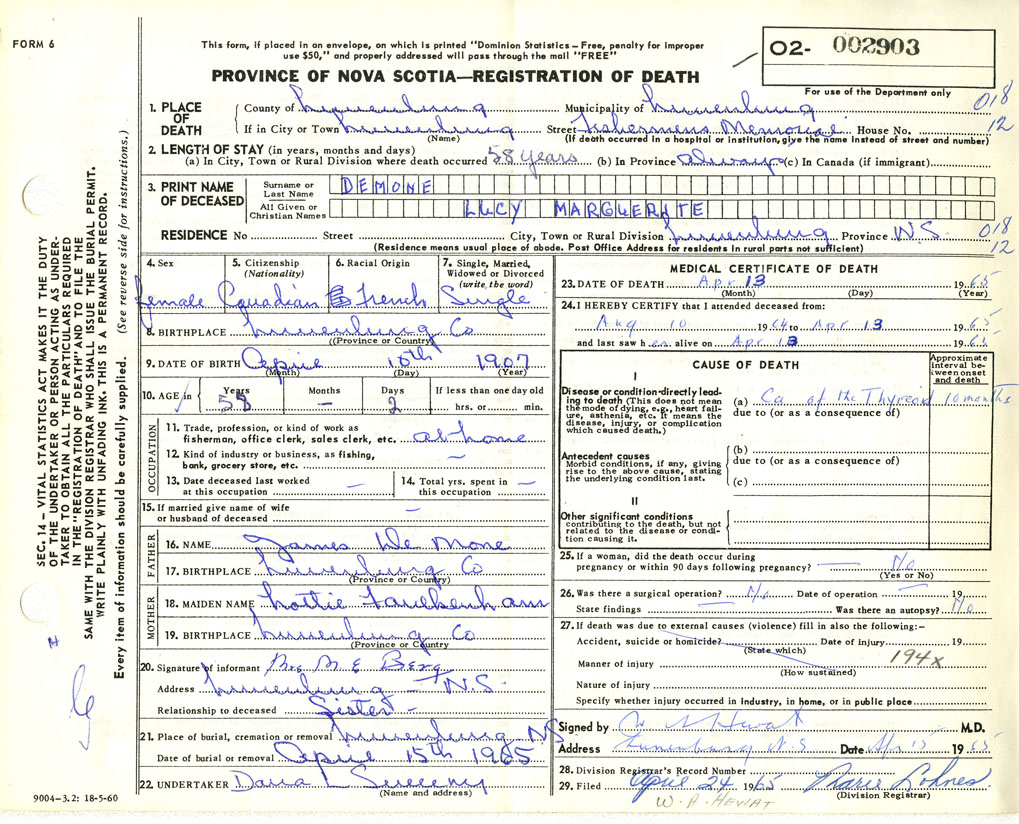 FORM 6
This form, if placed in an envelope, on which is printed "Dominion Statistics – Free, penalty for improper
use $50," and properly addressed will pass through the mail "FREE"
PROVINCE OF NOVA SCOTIA—REGISTRATION OF DEATH
02- 002903
For use of the Department only
018
12
1. PLACE OF DEATH County of Lunenburg Municipality of Lunenburg
If in City or Town Lunenburg Street Fishermens Memorial House No.
(Name) (If death occurred in a hospital or institution, give the name instead of street and number)
2. LENGTH OF STAY (in years, months and days)
(a) In City, Town or Rural Division where death occurred 58 years (b) In Province always (c) In Canada (if immigrant)
3. PRINT NAME OF DECEASED
Surname or Last Name DEMONE
All Given or Christian Names LUCY MARGUERITE
RESIDENCE No Street City, Town or Rural Division Lunenburg Province N.S. 018
12
(Residence means usual place of abode. Post Office Address for residents in rural parts not sufficient)
4. Sex 5. Citizenship (Nationality) 6. Racial Origin 7. Single, Married, Widowed or Divorced (write the word)
female Canadian French Single
8. BIRTHPLACE Lunenburg Co
((Province or Country)
9. DATE OF BIRTH April 10th 1907
(Month) (Day) (Year)
10. AGE in Years Months Days If less than one day old
58 — 2 hrs. or min.
OCCUPATION
11. Trade, profession, or kind of work as
fisherman, office clerk, sales clerk, etc. at home
12. Kind of industry or business, as fishing,
bank, grocery store, etc. —
13. Date deceased last worked at this occupation —
14. Total yrs. spent in this occupation —
15. If married give name of wife
or husband of deceased —
FATHER
16. NAME James De Mone
17. BIRTHPLACE Lunenburg Co
(Province or Country)
MOTHER
18. MAIDEN NAME Lottie Faulkenham
19. BIRTHPLACE Lunenburg Co
(Province or Country
20. Signature of informant Mrs M E Berg
Address Lunenburg — N.S.
Relationship to deceased Sister —
21. Place of burial, cremation or removal Lunenburg NS
Date of burial or removal April 15th 1965
22. UNDERTAKER Dana L Sweeny
(Name and address)
9004-3.2: 18-5-60
MEDICAL CERTIFICATE OF DEATH
23. DATE OF DEATH Apr 13 1965
(Month) (Day) (Year)
24. I HEREBY CERTIFY that I attended deceased from:
Aug 10 1964 to Apr 13 1965
and last saw her alive on Apr 13 1965
CAUSE OF DEATH
Approximate interval between onset and death
I
Disease or condition directly leading to death (This does not mean the mode of dying, e.g., heart failure, asthenia, etc. It means the disease, injury, or complication which caused death.)
(a) Ca of the Thyroid 10 months
due to (or as a consequence of)
Antecedent causes
Morbid conditions, if any, giving rise to the above cause, stating the underlying condition last.
(b)
due to (or as a consequence of)
(c)
II
Other significant conditions
contributing to the death, but not related to the disease or condition causing it.
25. If a woman, did the death occur during
pregnancy or within 90 days following pregnancy? — No
(Yes or No)
26. Was there a surgical operation? No Date of operation — 19
State findings — Was there an autopsy? No
27. If death was due to external causes (violence) fill in also the following:–
Accident, suicide or homicide? Date of injury 19
(State which)
Manner of injury 194x
(How sustained)
Nature of injury
Specify whether injury occurred in industry, in home, or in public place
Signed by W A Hewat M.D.
Address Lunenburg N.S Date Apr 15 1965
28. Division Registrar's Record Number
29. Filed April 24 1965 Lohnes
(Division Registrar)
W. A. HEWAT
SEC. 14 – VITAL STATISTICS ACT MAKES IT THE DUTY
OF THE UNDERTAKER OR PERSON ACTING AS UNDER-
TAKER TO OBTAIN ALL THE PARTICULARS REQUIRED
IN THE "REGISTRATION OF DEATH" AND TO FILE THE
SAME WITH THE DIVISION REGISTRAR WHO SHALL ISSUE THE BURIAL PERMIT.
WRITE PLAINLY WITH UNFADING INK. THIS IS A PERMANENT RECORD.
Every item of information should be carefully supplied. (See reverse side for instructions.)